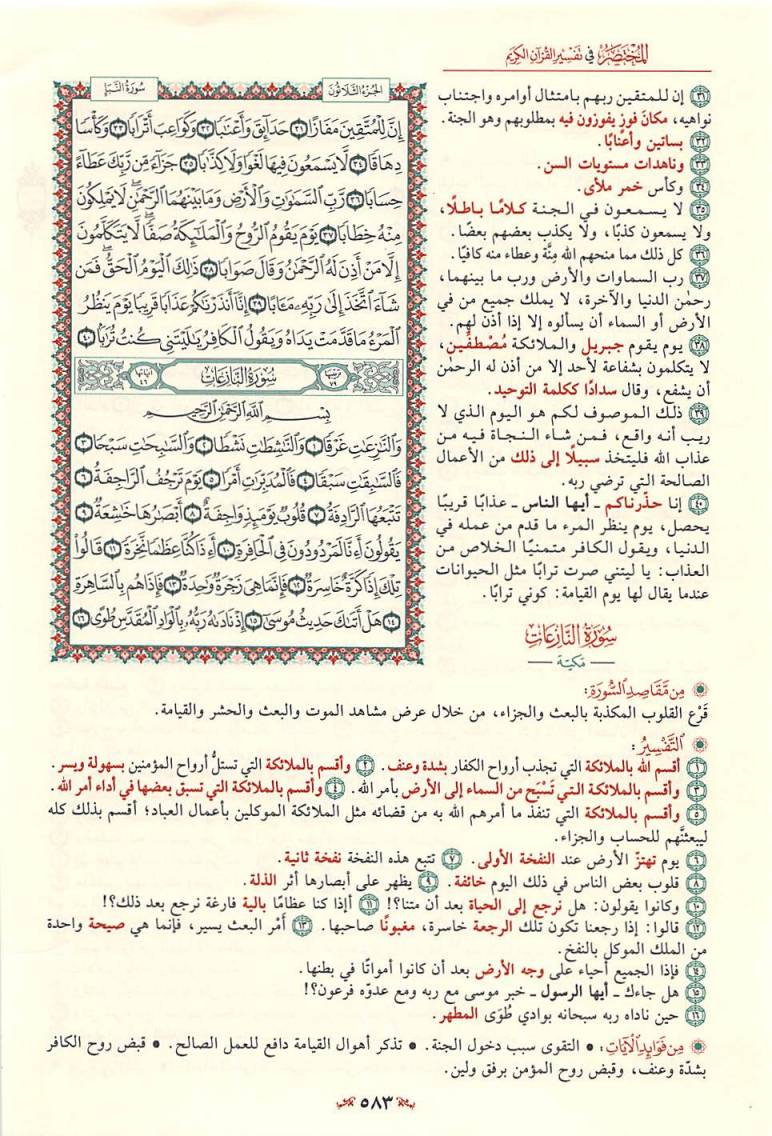 المختصر في تفسير القرآن الكريم
الجزء الثلاثون
سورة النبإ
إِنَّ لِلْمُتَّقِينَ مَفَازًا ٣١ حَدَائِقَ وَأَعْنَابًا ٣٢ وَكَوَاعِبَ أَتْرَابًا ٣٣ وَكَأْسًا
دِهَاقًا ٣٤ لَّا يَسْمَعُونَ فِيهَا لَغْوًا وَلَا كِذَّابًا ٣٥ جَزَاءً مِّن رَّبِّكَ عَطَاءً
حِسَابًا ٣٦ رَّبِّ السَّمَاوَاتِ وَالْأَرْضِ وَمَا بَيْنَهُمَا الرَّحْمَٰنِ لَا يَمْلِكُونَ
مِنْهُ خِطَابًا ٣٧ يَوْمَ يَقُومُ الرُّوحُ وَالْمَلَائِكَةُ صَفًّا لَّا يَتَكَلَّمُونَ
إِلَّا مَنْ أَذِنَ لَهُ الرَّحْمَٰنُ وَقَالَ صَوَابًا ٣٨ ذَٰلِكَ الْيَوْمُ الْحَقُّ فَمَن
شَاءَ اتَّخَذَ إِلَىٰ رَبِّهِ مَآبًا ٣٩ إِنَّا أَنذَرْنَاكُمْ عَذَابًا قَرِيبًا يَوْمَ يَنظُرُ
الْمَرْءُ مَا قَدَّمَتْ يَدَاهُ وَيَقُولُ الْكَافِرُ يَا لَيْتَنِي كُنتُ تُرَابًا ٤٠
ترتيبها ٧٩ سورة النازعات آياتها ٤٦
بِسْمِ اللَّهِ الرَّحْمَٰنِ الرَّحِيمِ
وَالنَّازِعَاتِ غَرْقًا ١ وَالنَّاشِطَاتِ نَشْطًا ٢ وَالسَّابِحَاتِ سَبْحًا ٣
فَالسَّابِقَاتِ سَبْقًا ٤ فَالْمُدَبِّرَاتِ أَمْرًا ٥ يَوْمَ تَرْجُفُ الرَّاجِفَةُ ٦
تَتْبَعُهَا الرَّادِفَةُ ٧ قُلُوبٌ يَوْمَئِذٍ وَاجِفَةٌ ٨ أَبْصَارُهَا خَاشِعَةٌ ٩
يَقُولُونَ أَءِنَّا لَمَرْدُودُونَ فِي الْحَافِرَةِ ١٠ أَءِذَا كُنَّا عِظَامًا نَّخِرَةً ١١ قَالُوا
تِلْكَ إِذًا كَرَّةٌ خَاسِرَةٌ ١٢ فَإِنَّمَا هِيَ زَجْرَةٌ وَاحِدَةٌ ١٣ فَإِذَا هُم بِالسَّاهِرَةِ
١٤ هَلْ أَتَاكَ حَدِيثُ مُوسَىٰ ١٥ إِذْ نَادَاهُ رَبُّهُ بِالْوَادِ الْمُقَدَّسِ طُوًى ١٦
٣١ إن للمتقين ربهم بامتثال أوامره واجتناب
نواهيه، مكانَ فوزٍ يفوزون فيه بمطلوبهم وهو الجنة.
٣٢ بساتين وأعنابًا.
٣٣ وناهدات مستويات السن.
٣٤ وكأس خمر ملأى.
٣٥ لا يسمعون في الجنة كلامًا باطلًا،
ولا يسمعون كذبًا، ولا يكذب بعضهم بعضًا.
٣٦ كل ذلك مما منحهم الله مِنَّة وعطاء منه كافيًا.
٣٧ رب السماوات والأرض ورب ما بينهما،
رحمٰن الدنيا والآخرة، لا يملك جميع من في
الأرض أو السماء أن يسألوه إلا إذا أذن لهم.
٣٨ يوم يقوم جبريل والملائكة مُصْطفِّين،
لا يتكلمون بشفاعة لأحد إلا من أذن له الرحمٰن
أن يشفع، وقال سدادًا ككلمة التوحيد.
٣٩ ذلك الموصوف لكم هو اليوم الذي لا
ريب أنه واقع، فمن شاء النجاة فيه من
عذاب الله فليتخذ سبيلًا إلى ذلك من الأعمال
الصالحة التي ترضي ربه.
٤٠ إنا حذّرناكم ـ أيها الناس ـ عذابًا قريبًا
يحصل، يوم ينظر المرء ما قدم من عمله في
الدنيا، ويقول الكافر متمنيًا الخلاص من
العذاب: يا ليتني صرت ترابًا مثل الحيوانات
عندما يقال لها يوم القيامة: كوني ترابًا.
سورة النازعات
— مكية —
من مقاصد السورة:
قَرْع القلوب المكذبة بالبعث والجزاء، من خلال عرض مشاهد الموت والبعث والحشر والقيامة.
التفسير:
١ أقسم الله بالملائكة التي تجذب أرواح الكفار بشدة وعنف. ٢ وأقسم بالملائكة التي تستلُّ أرواح المؤمنين بسهولة ويسر.
٣ وأقسم بالملائكة التي تَسْبَح من السماء إلى الأرض بأمر الله. ٤ وأقسم بالملائكة التي تسبق بعضها في أداء أمر الله.
٥ وأقسم بالملائكة التي تنفذ ما أمرهم الله به من قضائه مثل الملائكة الموكلين بأعمال العباد؛ أقسم بذلك كله
ليبعثنَّهم للحساب والجزاء.
٦ يوم تهتزّ الأرض عند النفخة الأولى. ٧ تتبع هذه النفخة نفخة ثانية.
٨ قلوب بعض الناس في ذلك اليوم خائفة. ٩ يظهر على أبصارها أثر الذلة.
١٠ وكانوا يقولون: هل نرجع إلى الحياة بعد أن متنا؟! ١١ أإذا كنا عظامًا بالية فارغة نرجع بعد ذلك؟!
١٢ قالوا: إذا رجعنا تكون تلك الرجعة خاسرة، مغبونًا صاحبها. ١٣ أَمْر البعث يسير، فإنما هي صيحة واحدة
من الملك الموكل بالنفخ.
١٤ فإذا الجميع أحياء على وجه الأرض بعد أن كانوا أمواتًا في بطنها.
١٥ هل جاءك ـ أيها الرسول ـ خبر موسى مع ربه ومع عدوّه فرعون؟!
١٦ حين ناداه ربه سبحانه بوادي طُوَى المطهر.
من فوائد الآيات: • التقوى سبب دخول الجنة. • تذكر أهوال القيامة دافع للعمل الصالح. • قبض روح الكافر
بشدّة وعنف، وقبض روح المؤمن برفق ولين.
٥٨٣